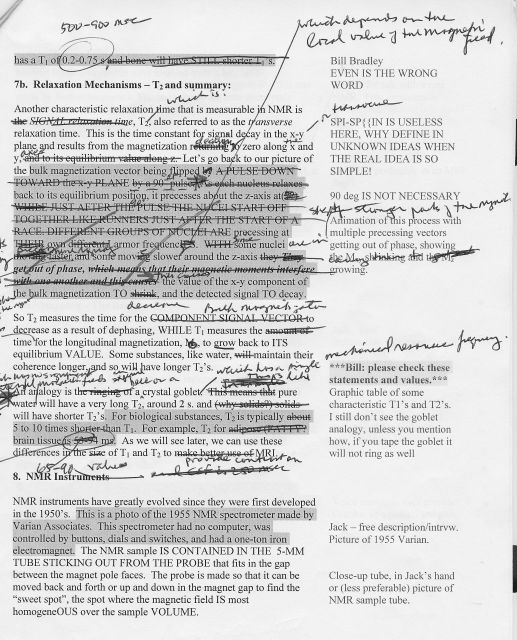 500-900 msc
which depends on the
local value of the magnetic
field.
has a T1 of 0.2-0.75 s and bone will have STILL shorter T1's.
Bill Bradley
EVEN IS THE WRONG
WORD
7b. Relaxation Mechanisms – T2 and summary:
which is:
Another characteristic relaxation time that is measurable in NMR is
the SIGNAL relaxation time, T2, also referred to as the transverse
transverse
relaxation time. This is the time constant for signal decay in the x-y
plane and results from the magnetization returning to zero along x and
y, and to its equilibrium value along z. Let's go back to our picture of
SPI-SP{{IN IS USELESS
HERE, WHY DEFINE IN
UNKNOWN IDEAS WHEN
THE REAL IDEA IS SO
SIMPLE!
the bulk magnetization vector being flipped by A PULSE DOWN
TOWARD the x-y PLANE by a 90° pulse. As each nucleus relaxes
back to its equilibrium position, it precesses about the z-axis at
WHILE JUST AFTER THE PULSE THE NUCLEI START OUT
TOGETHER LIKE RUNNERS JUST AFTER THE START OF A
RACE. DIFFERENT GROUPS OF NUCLEI ARE precessing at
THEIR own different Larmor frequencies. WITH some nuclei
are in
moving faster and some moving slower around the z-axis they They
get out of phase, which means that their magnetic moments interfere
with one another and this causes the value of the x-y component of
the bulk magnetization TO shrink, and the detected signal TO decay.
decrease
90 deg IS NOT NECESSARY
stronger parts of the magnet.
Animation of this process with
multiple precessing vectors
getting out of phase, showing
the Mxy shrinking and the Mz
growing.
Bulk magnetization
So T2 measures the time for the COMPONENT SIGNAL VECTOR to
decrease as a result of dephasing, WHILE T1 measures the amount of
time for the longitudinal magnetization, to grow back to ITS
equilibrium VALUE. Some substances, like water, will maintain their
coherence longer, and so will have longer T2's.
which has a single
mechanical resonance frequency.
An analogy is the ringing of a crystal goblet. This means that pure
water will have a very long T2, around 2 s. and (why solids?) solids
will have shorter T2's. For biological substances, T2 is typically about
5 to 10 times shorter than T1. For example, T2 for adipose (FATTY?)
brain tissue is 50-54 ms. As we will see later, we can use these
differences in the size of T1 and T2 to make better use of MRI.
values
provide contrast in
***Bill: please check these
statements and values.***
Graphic table of some
characteristic T1's and T2's.
I still don't see the goblet
analogy, unless you mention
how, if you tape the goblet it
will not ring as well
8. NMR Instruments
NMR instruments have greatly evolved since they were first developed
in the 1950's. This is a photo of the 1955 NMR spectrometer made by
Varian Associates. This spectrometer had no computer, was
controlled by buttons, dials and switches, and had a one-ton iron
electromagnet. The NMR sample IS CONTAINED IN THE 5-MM
TUBE STICKING OUT FROM THE PROBE that fits in the gap
between the magnet pole faces. The probe is made so that it can be
moved back and forth or up and down in the magnet gap to find the
"sweet spot", the spot where the magnetic field IS most
homogeneOUS over the sample VOLUME.
Jack – free description/intrvw.
Picture of 1955 Varian.
Close-up tube, in Jack's hand
or (less preferable) picture of
NMR sample tube.